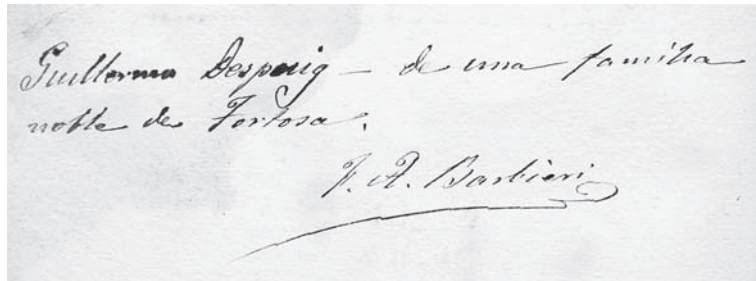 Guillermo Despuig — de una familia
noble de Tortosa.
F. A. Barbieri